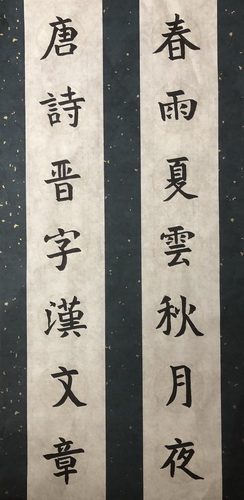 春雨夏雲秋月夜
唐詩晋字漢文章